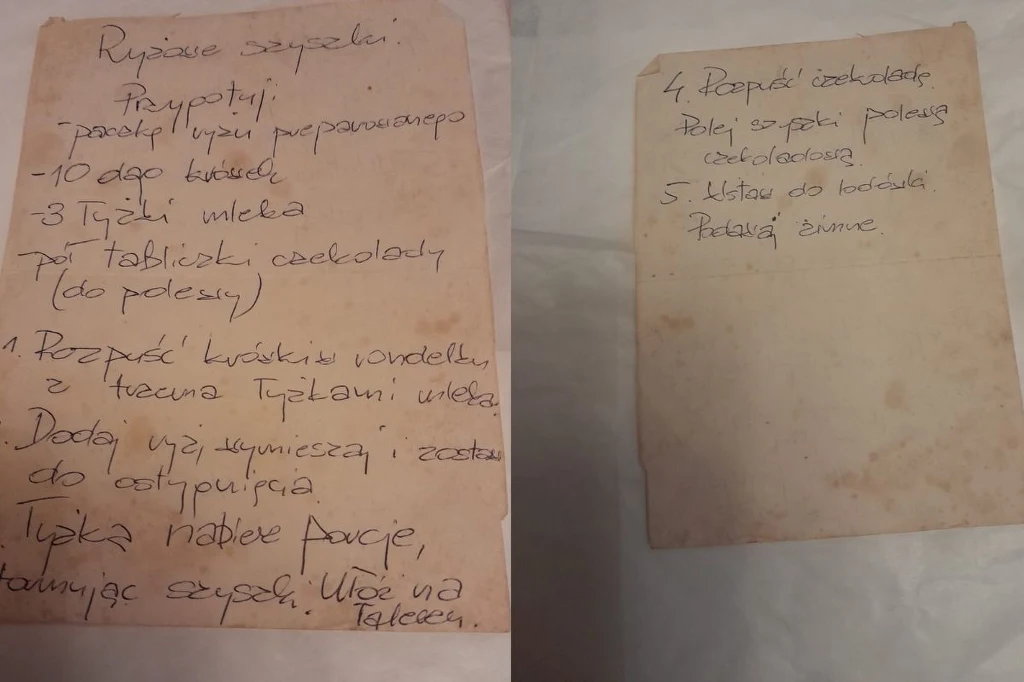 Ryżowe szyszki.
Przygotuj:
- paczkę ryżu preparowanego
- 10 dag krówek
- 3 łyżki mleka
- pół tabliczki czekolady
(do polewy)
1. Rozpuść krówki w rondelku
z trzema łyżkami mleka.
Dodaj ryż, wymieszaj i zostaw
do ostygnięcia.
Łyżką nabierz porcje,
szyszki. Ułóż na
Talerzu.
4. Rozpuść czekoladę.
Polej szyszki polewą
czekoladową.
5. Wstaw do lodówki.
Podawaj zimne.